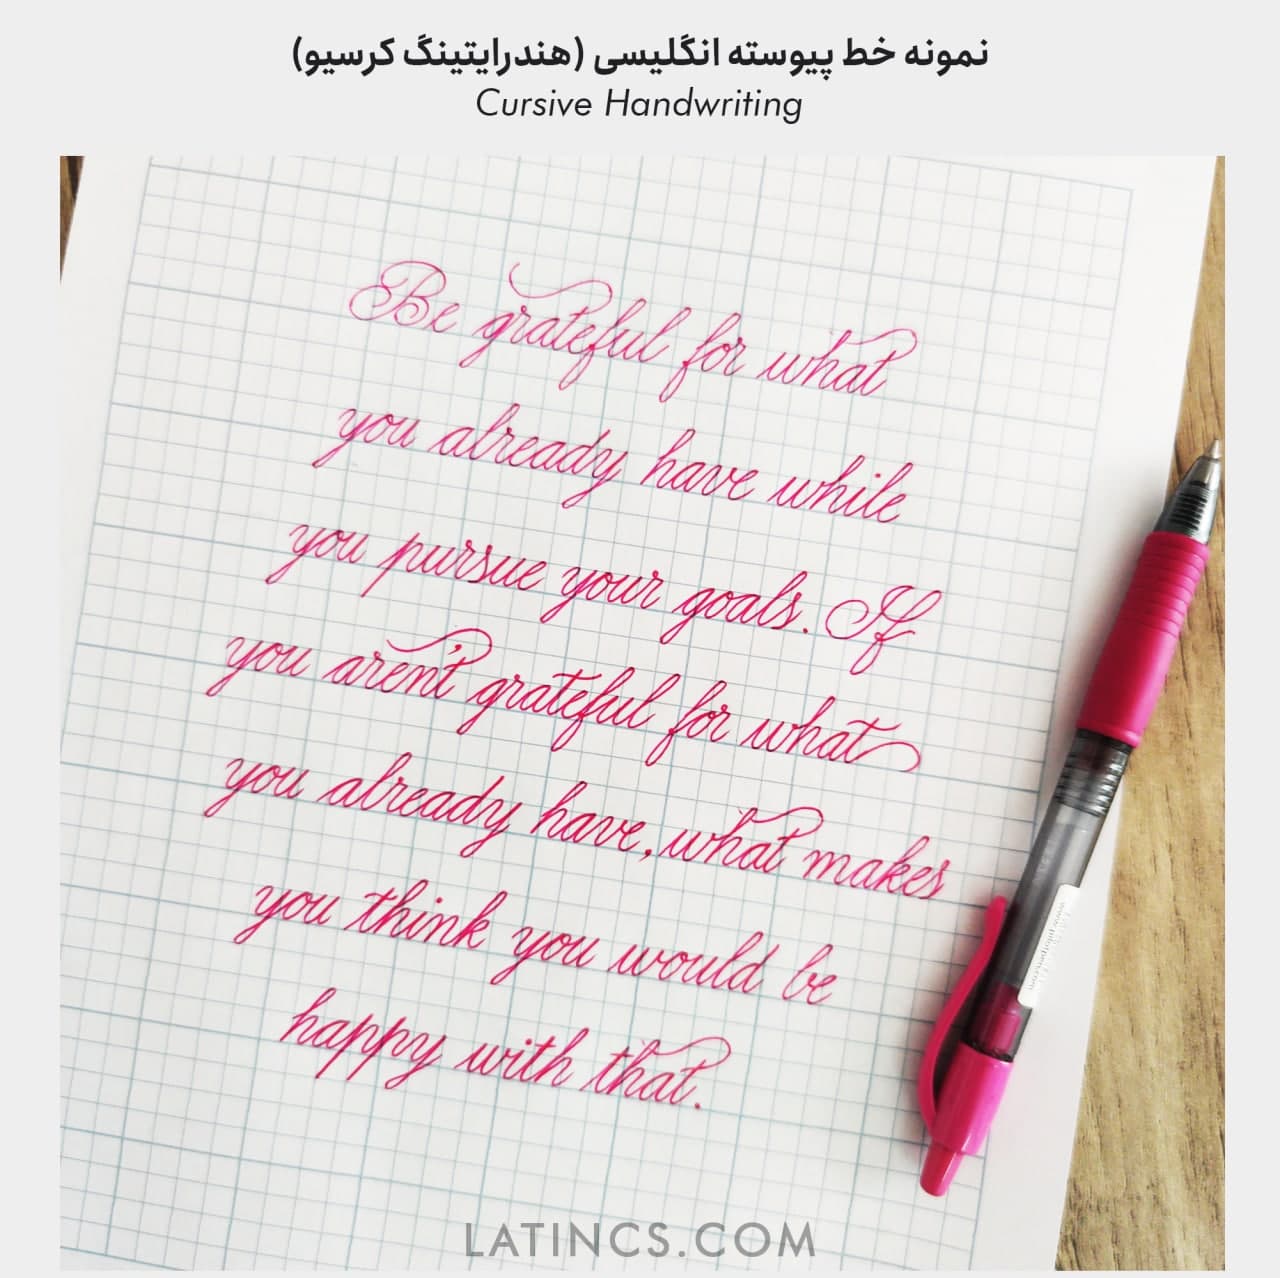 نمونه خط پیوسته انگلیسی (هندرایتینگ کرسیو)
Cursive Handwriting
Be grateful for what
you already have while
you pursue your goals. If
you aren't grateful for what
you already have, what makes
you think you would be
happy with that.
LATINCS.COM